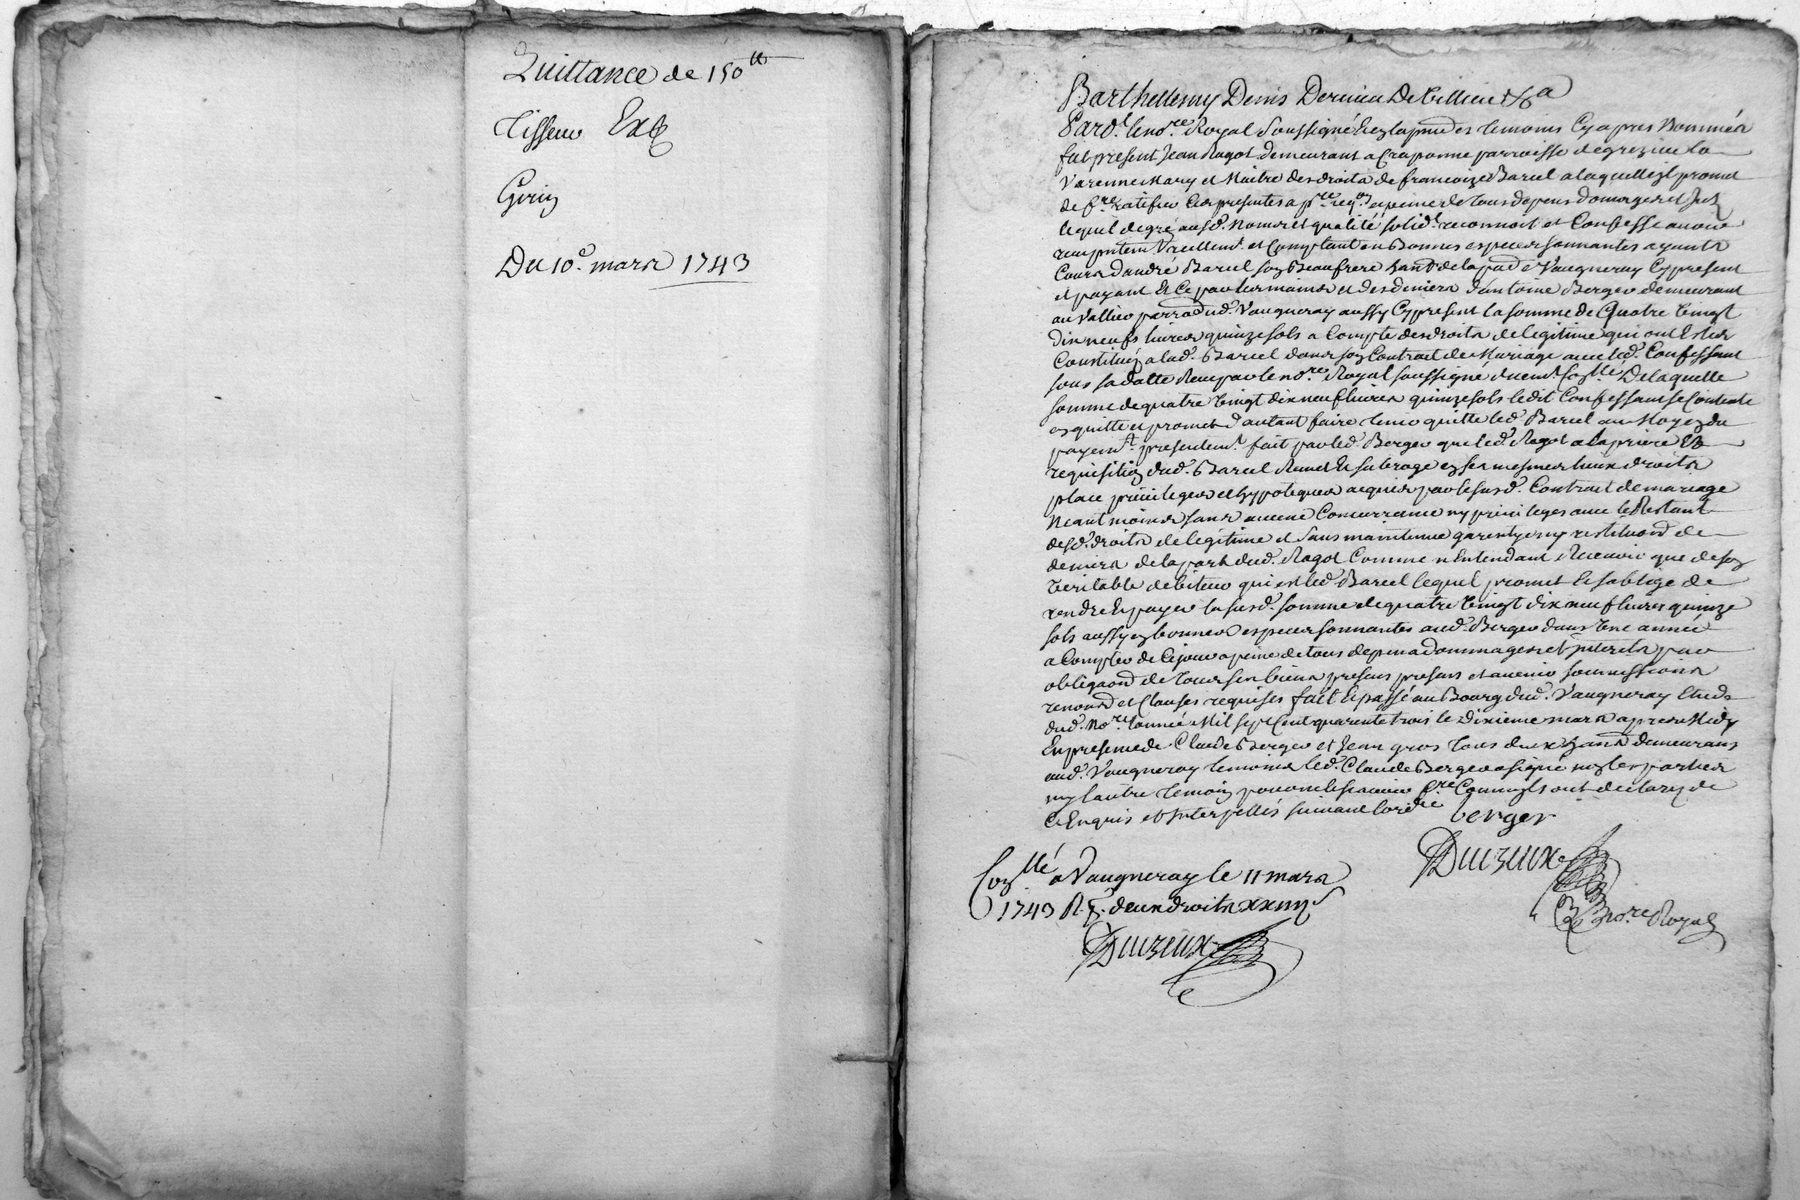 Quittance de 150 tt
Tisseur Et
Girin
Du 10e. mars 1743
Barthellemy Denis Dervieu De Villieu &a
Pard.t le no.re Royal soussigné et les temoins Cyapres Nommés
fut present Jean Ragot demeurant a Craponne parroisse de grezieu la
Varenne Mary et Maitre des droits de francoize Barcel a laquelle il promet
de f.re ratifier Ces presentes a p.re req.on a peine de tous depens domages et
lequel de gré aus.d. Noms et qualité solid.t reconnoit et Confesse avoir
receu presentem.t et Comptant en Bonnes especes sonnantes ayants
Cours d'andré Barcel son Beaufrere de Vaugneray Cy present
et payant Et Ce par les mains et des deniers d'antoine Berger demeurant
au Vallier parr. dud. Vaugneray aussy Cy present la somme de Quatre Vingt
Dix neufs livres quinze sols a Compte des droits de legitime qui ont Estés
Constitués a lad. Barcel dans son Contrat de Mariage avec led. Confessant
sous sa datte Receu par le no.re Royal soussigné duem.t Con.llé De laquelle
somme de quatre Vingt dix neuf livres quinze sols le dit Confessant se Contente
en quitte et promet d'autant faire tenir quitte led. Barcel au Moyen du
payem.t presentem.t fait par led. Berger que led. Ragot a la priere Et
requisition dud. Barcel Remet Et subroge en ses mesmes lieux droits
place privileges et hypoteques acquis par le susd. Contrat de mariage
Neantmoins sans aucune Concurrance ny privileges avec le Restant
desd. droits de legitime et sans maintenue garentye ny restituon de
deniers de la part dud. Ragot Comme n'Entendant Recevoir que de son
Veritable debiteur qui est led. Barcel lequel promet Et s'oblige de
rendre Et payer la susd. somme de quatre Vingt dix neuf livres quinze
sols aussy en bonnes especes sonnantes aud. Berger dans Une année
a Compter de Ce jour a peine de tous depens dommages et Interets par
obligaon de tous ses biens presens presens et avenir soumissions
renons et Clauses requises fait Et passé au Bourg dud. Vaugneray Etude
dud. No.re l'année Mil sept Cent quarente trois le dixieme mars apres Midy
En presence de Claude Berger et Jean gros tous deux demeurans
aud. Vaugneray temoins led. Claude Berger a signé non les parties
ny l'autre temoin pour ne le scavoir f.re Comm'ils ont declaré de
Ce Enquis et Interpellés suivant l'ord.ce
berger
Duizeux
no.re Royal
Con.llé a Vaugneray le 11 mars
1743 R. deux droits
Duizeux